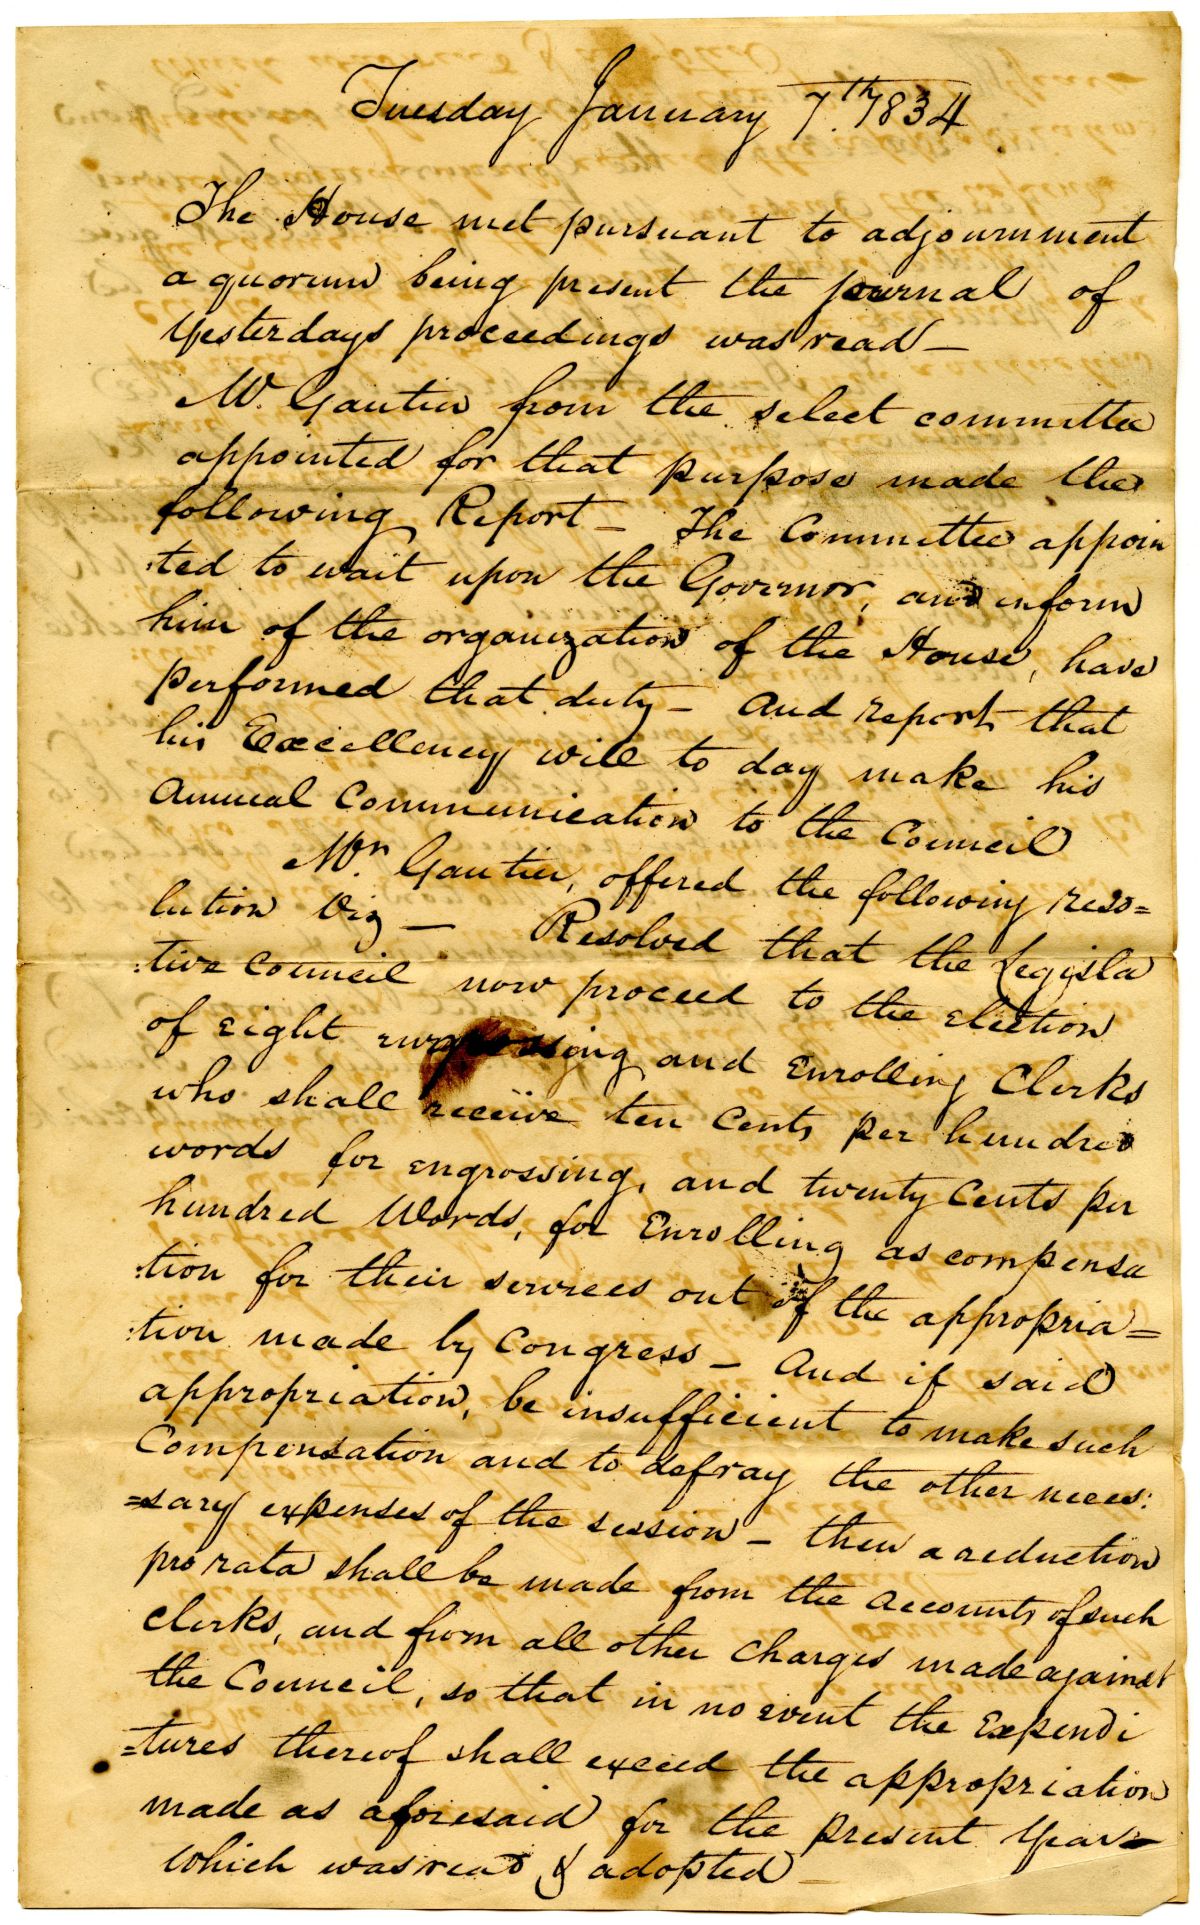 Tuesday January 7.th 1834
The House met pursuant to adjournment
a quorum being present the journal of
Yesterdays proceedings was read –
Mr. Gautier from the select committee
appointed for that purpose made the
following Report – The Committee appoin
:ted to wait upon the Governor, and inform
him of the organization of the House, have
performed that duty – And report that
his Excellency will to day make his
Annual Communication to the Council
Mr. Gautier, offered the following reso=
lution Viz – Resolved that the Legisla
:tive Council now proceed to the election
of eight engrossing and Enrolling Clerks
who shall receive ten Cents per hundred
words for engrossing, and twenty Cents per
hundred Words, for Enrolling as compensa
:tion for their services out of the appropria=
:tion made by Congress – And if said
appropriation, be insufficient to make such
Compensation and to defray the other neces:
=sary expenses of the session – then a reduction
pro rata shall be made from the accounts of such
Clerks, and from all other charges made against
the Council, so that in no event the Expendi
=tures thereof shall exceed the appropriation
made as aforesaid for the present Year –
Which was read & adopted –